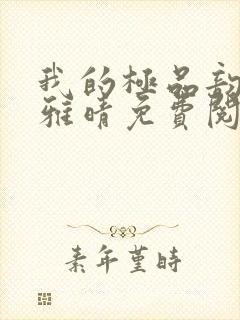 我的極品
雅晴免費閱
素年堇時